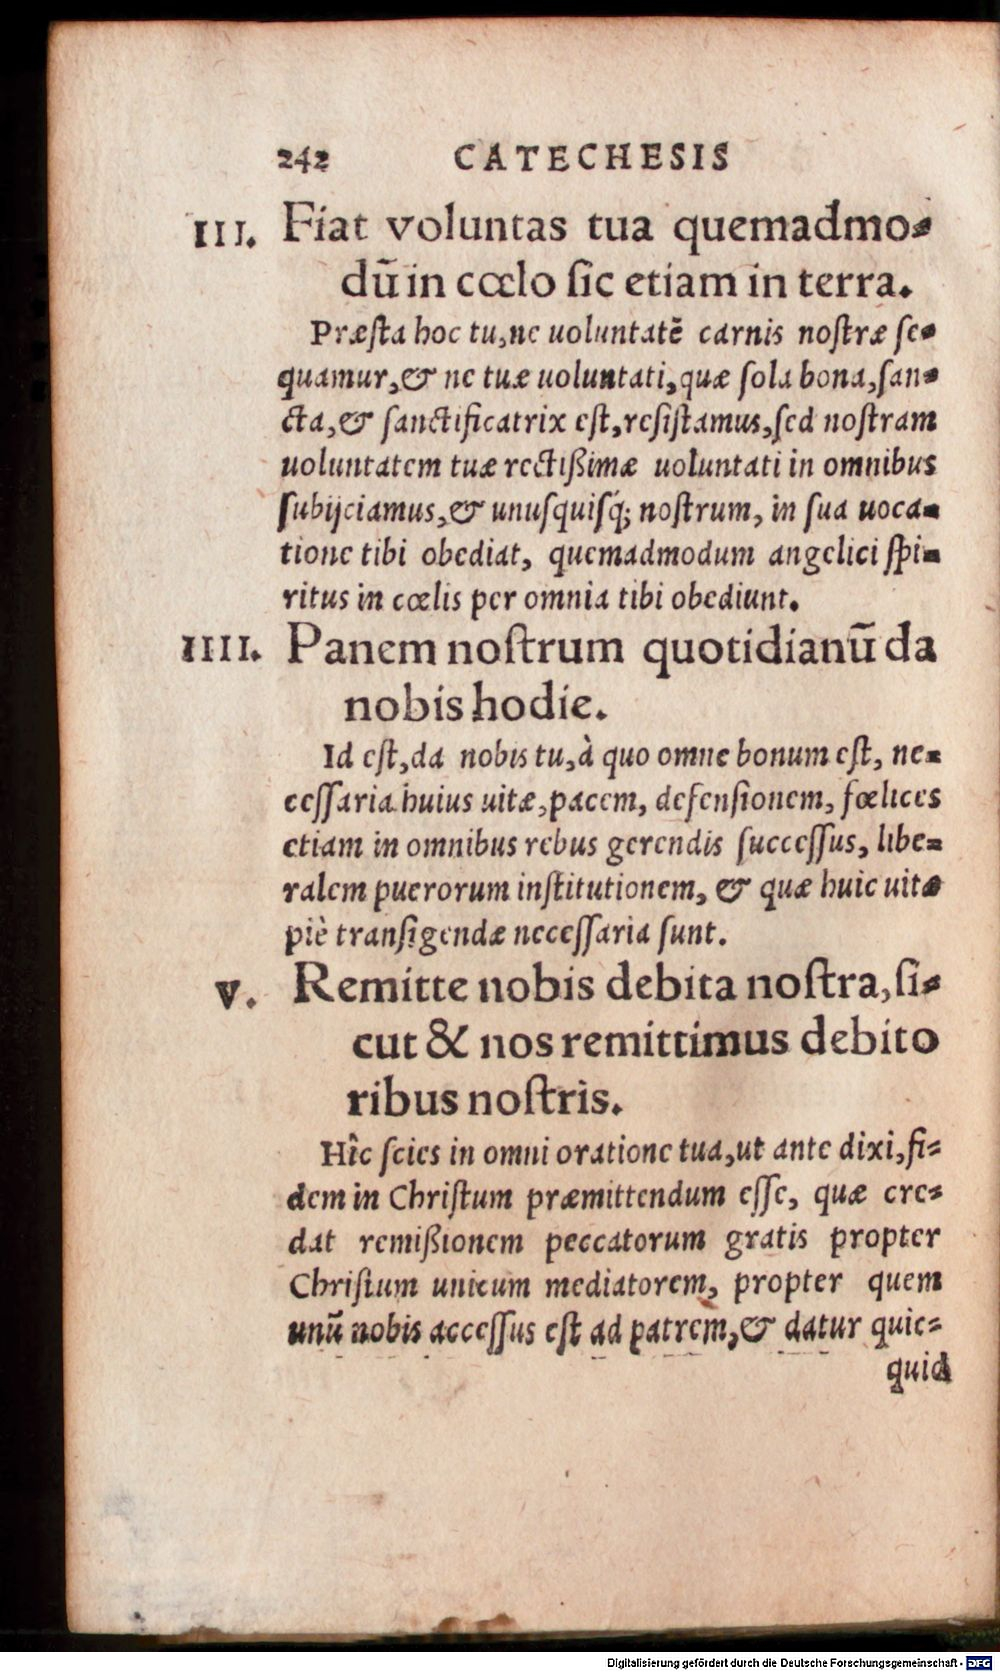 242 CATECHESIS
III. Fiat voluntas tua quemadmo⸗
dū in cœlo ſic etiam in terra.
Præſta hoc tu, ne uoluntatē carnis noſtræ ſe⸗
quamur, & ne tuæ uoluntati, quæ ſola bona, ſan⸗
cta, & ſanctificatrix eſt, reſiſtamus, ſed noſtram
uoluntatem tuæ rectißimæ uoluntati in omnibus
ſubijciamus, & unuſquiſq́; noſtrum, in ſua uoca⸗
tione tibi obediat, quemadmodum angelici ſpi⸗
ritus in cœlis per omnia tibi obediunt.
IIII. Panem noſtrum quotidianū da
nobis hodie.
Id eſt, da nobis tu, à quo omne bonum eſt, ne⸗
ceſſaria huius uitæ, pacem, defenſionem, fœlices
etiam in omnibus rebus gerendis ſucceſſus, libe⸗
ralem puerorum inſtitutionem, & quæ huic uitæ
piè tranſigendæ neceſſaria ſunt.
V. Remitte nobis debita noſtra, ſi⸗
cut & nos remittimus debito
ribus noſtris.
Hîc ſcies in omni oratione tua, ut ante dixi, fi⸗
dem in Chriſtum præmittendum eſſe, quæ cre⸗
dat remißionem peccatorum gratis propter
Chriſtum unicum mediatorem, propter quem
unū nobis acceſſus eſt ad patrem, & datur quic⸗
quid
Digitalisierung gefördert durch die Deutsche Forschungsgemeinschaft - DFG